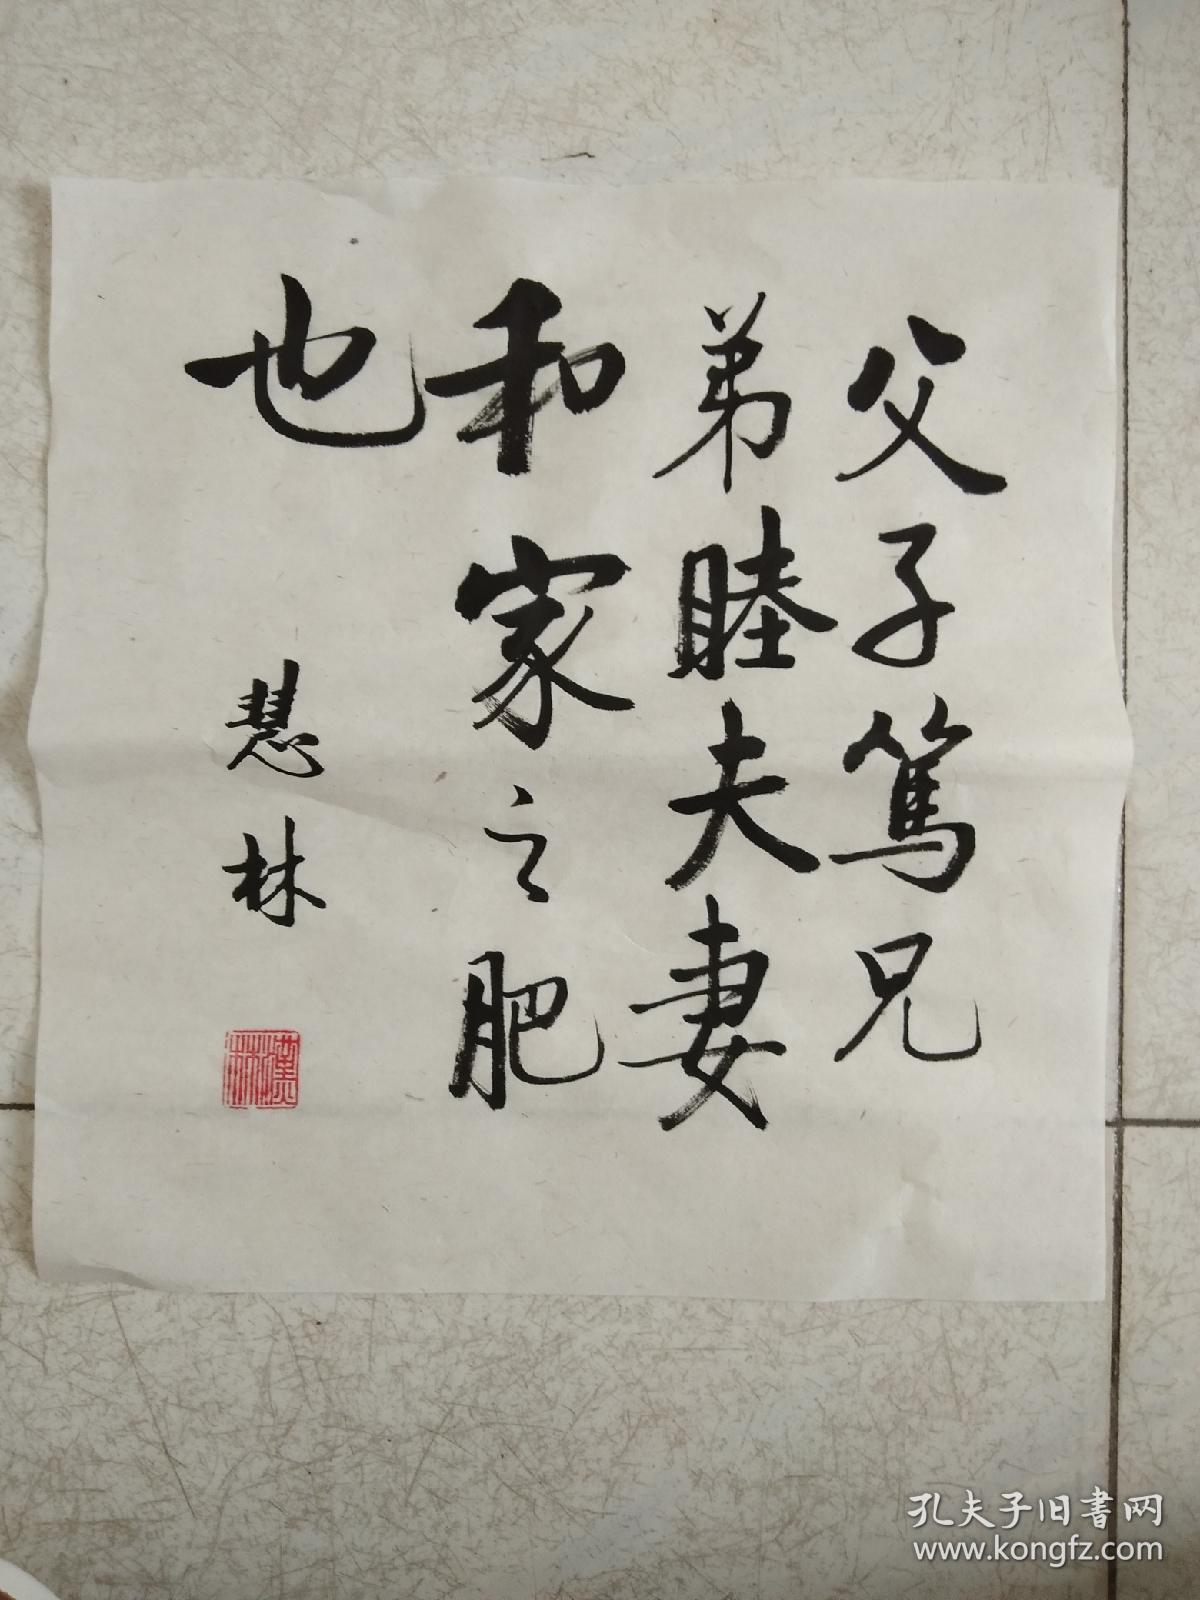 父子篤兄
弟睦夫妻
和家之肥
也
慧林
孔夫子旧書网
www.kongfz.com